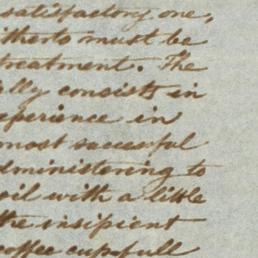 satisfactory one,
itherto must be
treatment. The
lly consists in
xperience in
most successful
dministering to
oil with a little
the insipient
coffee cupsfull